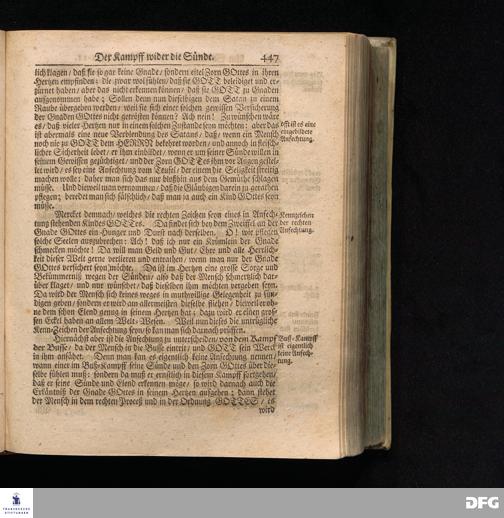 Der Kampff wider die Sünde. 447
lich klagen / daß sie so gar keine Gnade / sondern eitel Zorn GOttes in ihren
Hertzen empfinden: die zwar wol fühlen / daß sie GOTT beleidiget und er-
zürnet haben / aber das nicht erkennen können / daß sie GOTT zu Gnaden
aufgenommen habe; Sollen denn nun dieselbigen dem Satan zu einem
Raube übergeben werden / weil sie sich einer solchen gewissen Versicherung
der Gnaden GOttes nicht getrösten können? Ach nein! Zu wünschen wäre
es / daß vieler Hertzen nur in einem solchen Zustande seyn möchten: aber das
ist abermals eine neue Verblendung des Satans / daß / wenn ein Mensch
noch nie zu GOTT dem HERRN bekehret worden / und annoch in fleisch-
licher Sicherheit lebet / er ihm einbildet / wenn er um seiner Sünde willen in
seinem Gewissen gezüchtiget / und der Zorn GOTTes ihm vor Augen gestel-
let wird / es sey eine Anfechtung vom Teufel / der einem die Seligkeit streitig
machen wolle; daher man sich das nur bloßhin aus dem Gemüthe schlagen
müsse. Und dieweil man vernommen / daß die Gläubigen darein zu gerathen
pflegen; beredet man sich fälschlich / daß man ja auch ein Kind GOttes seyn
müsse.
Oft ist es eine
eingebildete
Anfechtung.
Mercket demnach / welches die rechten Zeichen seyn eines in Anfech-
tung stehenden Kindes GOTTes. Da findet sich bey dem Zweiffel an der
Gnade GOttes ein Hunger und Durst nach derselben. O! wie pflegen
solche Seelen auszubrechen: Ach! daß ich nur ein Krümlein der Gnade
schmecken möchte! Da will man Geld und Gut / Ehre und alle Herrlich-
keit dieser Welt gerne verlieren und entrathen / wenn man nur der Gnade
GOttes versichert seyn möchte. Da ist im Hertzen eine grosse Sorge und
Bekümmerniß wegen der Sünden / also daß der Mensch schmertzlich dar-
über klaget / und nur wünschet / daß dieselben ihm möchten vergeben seyn.
Da wird der Mensch sich keines weges in muthwillige Gelegenheit zu sün-
digen geben / sondern er wird am allermeisten dieselbe fliehen / dieweil er oh-
ne dem schon Elend genug in seinem Hertzen hat; dazu wird er einen gros-
sen Eckel haben an allem Welt-Wesen. Weil nun dieses die untrügliche
Kenn-Zeichen der Anfechtung seyn / so kan man sich darnach prüffen.
Kennzeichen
der rechten
Anfechtung.
Hiernächst aber ist die Anfechtung zu unterscheiden / von dem Kampf
der Busse / da der Mensch in die Busse eintrit / und GOTT sein Werck
in ihm anfähet. Denn man kan es eigentlich keine Anfechtung nennen /
wann einer im Buß-Kampff seine Sünde und den Zorn GOttes über die-
selbe fühlen muß: sondern da muß er ernstlich in diesem Kampff fortgehen /
daß er seine Sünde und Elend erkennen möge / so wird darnach auch die
Erkäntniß der Gnade GOttes in seinem Hertzen aufgehen; dann stehet
der Mensch in dem rechten Proceß und in der Ordnung GOTTES / es
wird
Buß-Kampff
ist eigentlich
keine Anfech-
tung.
FRANCKESCHE
STIFTUNGEN
DFG